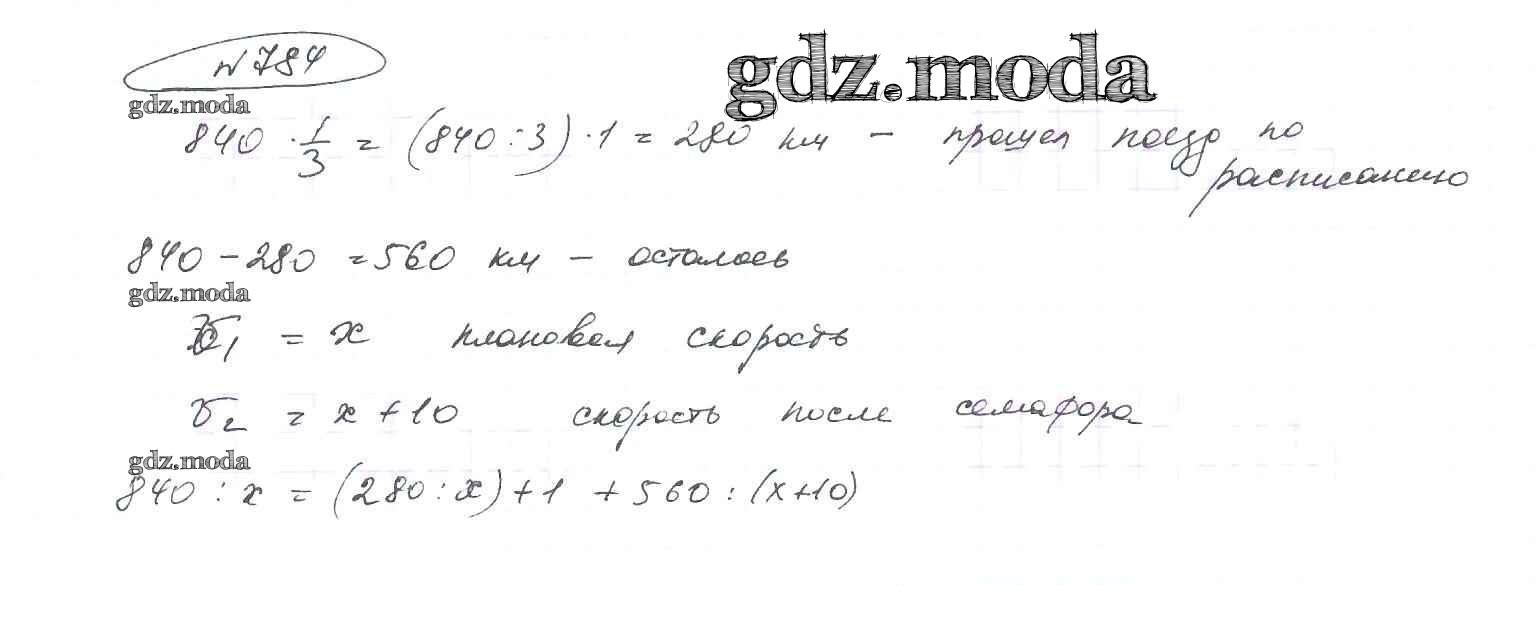 № 784
gdz.moda
gdz.moda
840 · 1/3 = (840 : 3) · 1 = 280 км – прошел поезд по
расписанию
840 – 280 = 560 км – осталось
gdz.moda
V₁ = x плановая скорость
V₂ = x + 10 скорость после семафора
gdz.moda
840 : x = (280 : x) + 1 + 560 : (x+10)